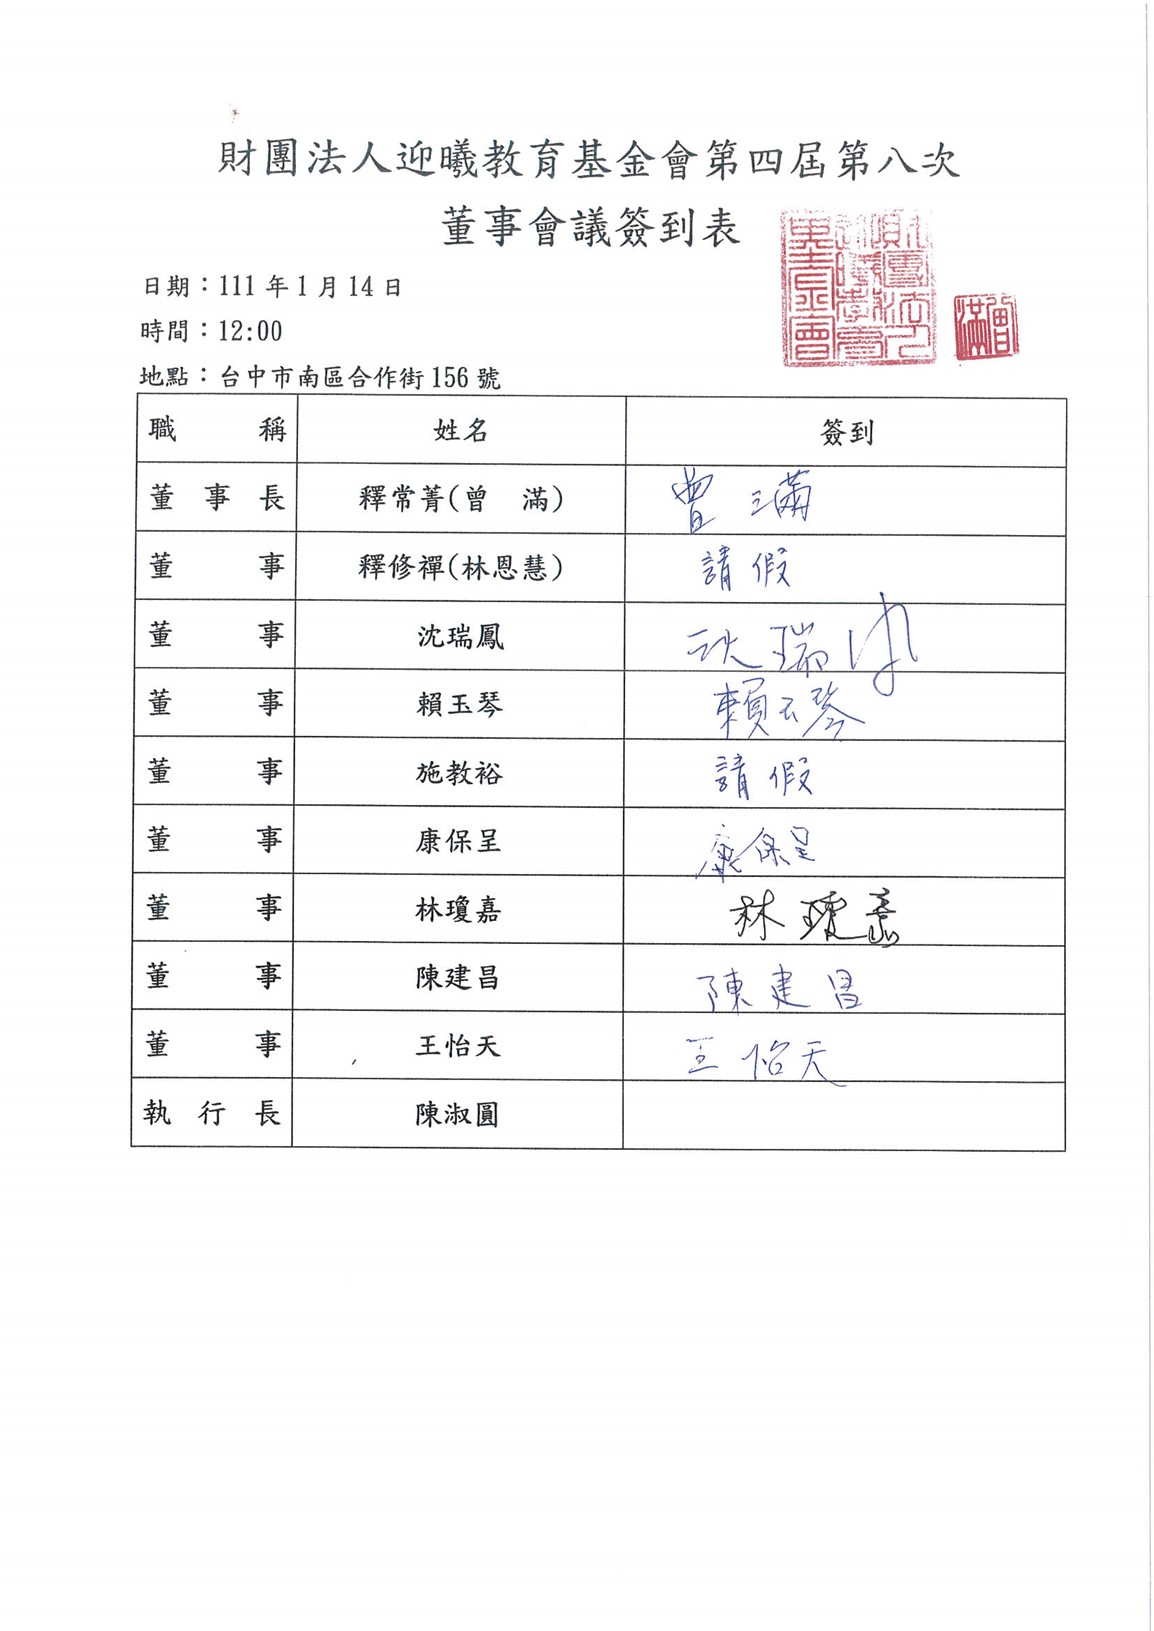 財團法人迎曦教育基金會第四屆第八次
董事會議簽到表
日期：111 年 1 月 14 日
時間：12:00
地點：台中市南區合作街 156 號
職 稱 姓名 簽到
董 事 長 釋常菁(曾 滿) 曾 滿
董 事 釋修禪(林恩慧) 請假
董 事 沈瑞鳳 沈瑞鳳
董 事 賴玉琴 賴玉琴
董 事 施教裕 請假
董 事 康保呈 康保呈
董 事 林瓊嘉 林瓊嘉
董 事 陳建昌 陳建昌
董 事 王怡天 王怡天
執 行 長 陳淑圓
財團法人
迎曦教育
基金會
曾滿